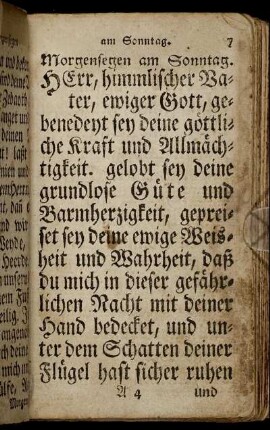 am Sonntag. 7
Morgensegen am Sonntag.
HErr, himmlischer Va-
ter, ewiger Gott, ge-
benedeyt sey deine göttli-
che Kraft und Allmäch-
tigkeit. gelobt sey deine
grundlose Güte und
Barmherzigkeit, geprei-
set sey deine ewige Weis-
heit und Wahrheit, daß
du mich in dieser gefähr-
lichen Nacht mit deiner
Hand bedecket, und un-
ter dem Schatten deiner
Flügel hast sicher ruhen
A 4 und